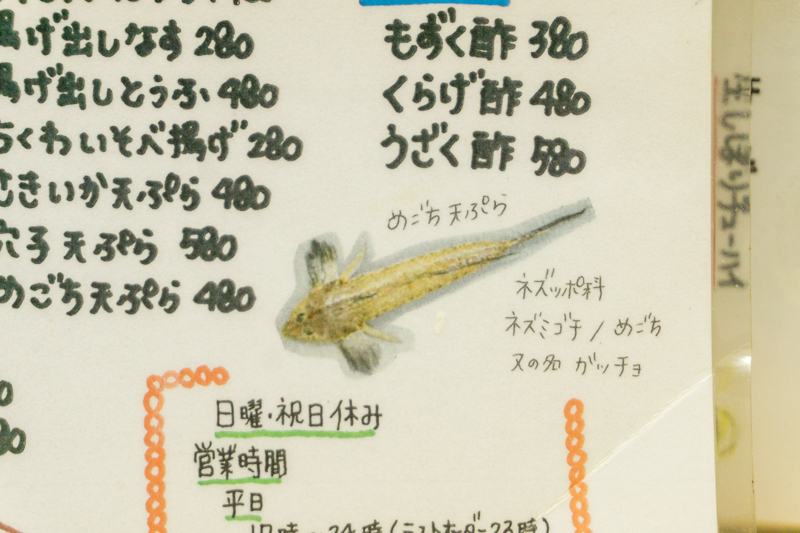 揚げ出しなす 280
揚げ出しとうふ 480
ちくわいそべ揚げ 280
さきいか天ぷら 480
穴子天ぷら 580
めごち天ぷら 480
もずく酢 380
くらげ酢 480
うざく酢 580
めごち天ぷら
ネズッポ科
ネズミゴチ / めごち
又の名 ガッチョ
日曜・祝日休み
営業時間
平日
生しぼりチューハイ